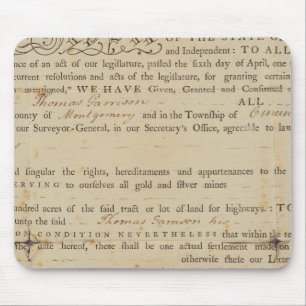 OF THE STATE OF
and Independent: TO ALL
nce of an act of our legislature, passed the sixth day of April, one t
current resolutions and acts of the legislature, for granting certain
mentioned," WE HAVE Given, Granted and Confirmed a
Thomas Garrison ALL
ounty of Montgomery and in the Township of
our Surveyor-General, in our Secretary's Office, agreeable to law
nd singular the rights, hereditaments and appurtenances to the
SERVING to ourselves all gold and silver mines
hundred acres of the said tract or lot of land for highways: TO
unto the said Thomas Garrison his
ON CONDITION NEVERTHELESS that within the te
date hereof, there shall be one actual settlement made on
otherwise these our Lette